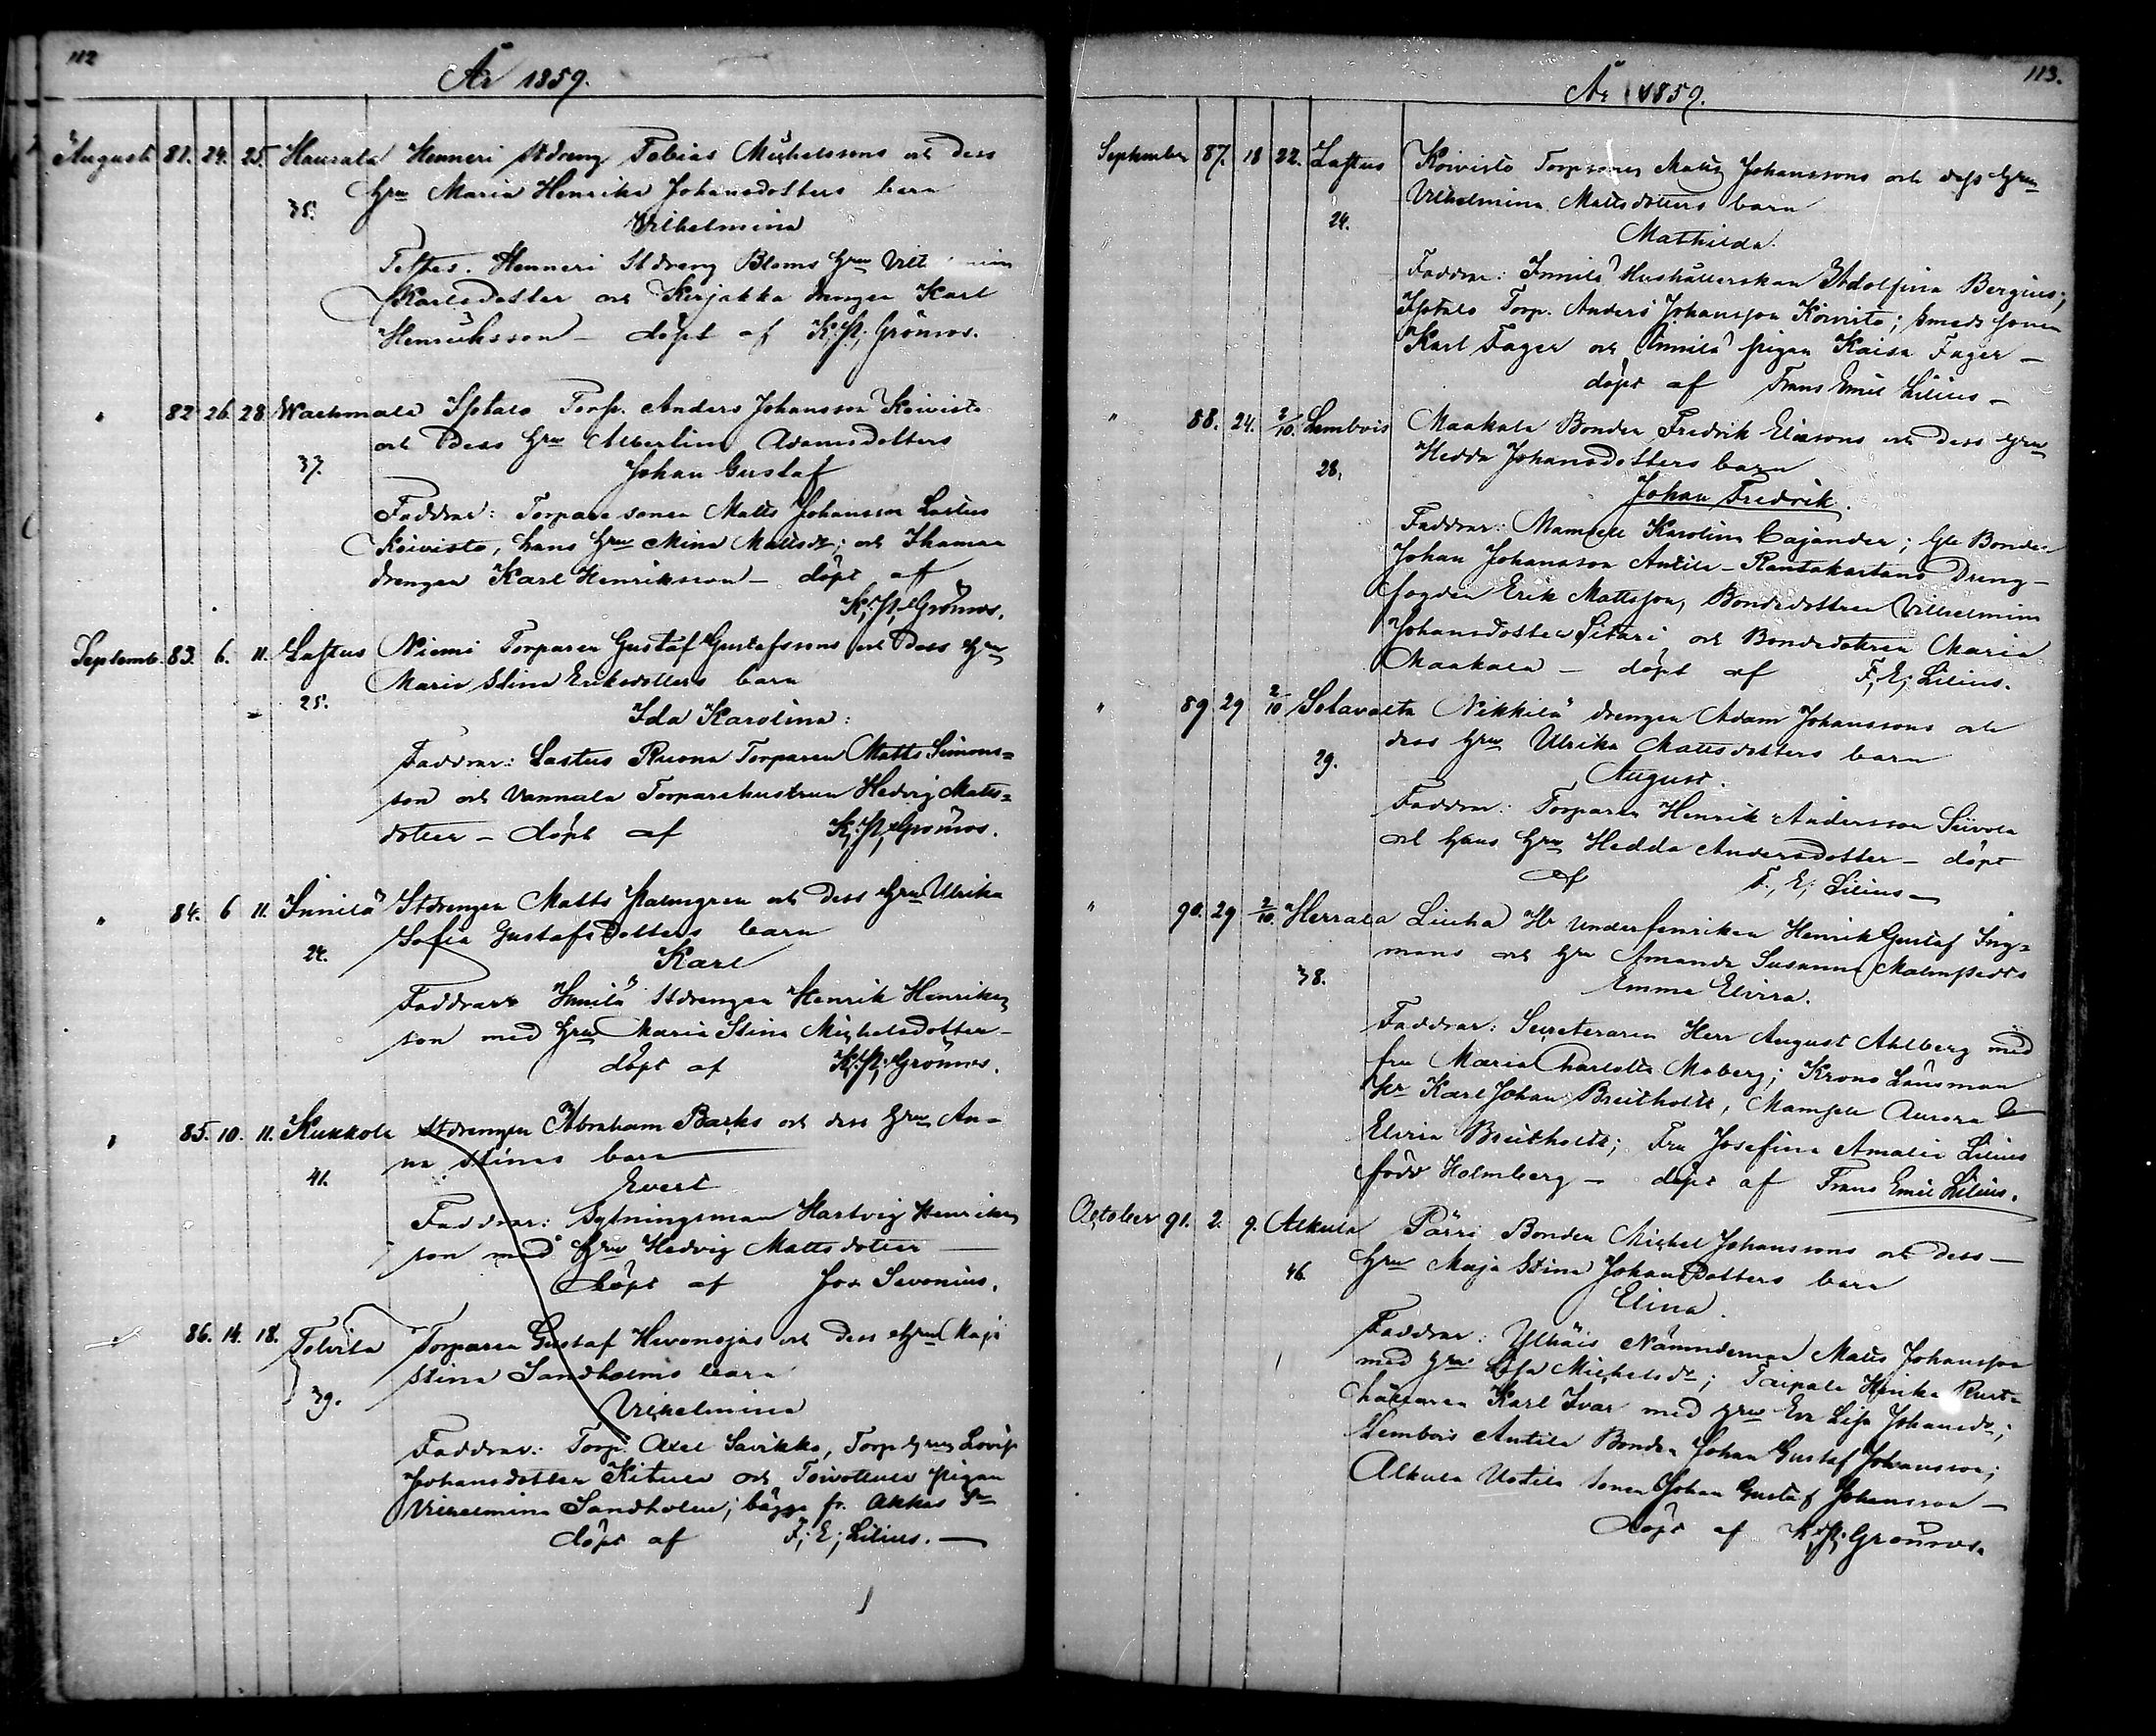 112
År 1859.
Augusti 81. 24. 25. Haurala Henneri stdreng Tobias Michelssons och dess
hru Maria Henrika Johansdotters barn
35.
Vilhelmina
Testes. Henneri Stdreng Bloms hru
Karlsdotter och Kerjakka drengen Karl
Henriksson — döpt af K; H; Grönros.
" 82 26. 28. Torp. Anders Johansson Koivisto
och dess hru Albertina Adamsdotters
37.
Johan Gustaf
Faddrar: Torparesonen Matts Johansson Lastus
Koivisto, hans hru Mina Mattsdr; och Ihamaa
drengen Karl Henriksson — döpt af
K; H; Grönros.
Septemb. 83. 6. 11. Lastus Niemi Torparen Gustaf Gustafssons och dess hru
Maria Stina Eriksdotters barn
25.
Ida Karolina:
Faddrar: Lastus Ruona Torparen Matts Simons=
son och Vannala Torparehustrun Hedvig Matts=
dotter — döpt af K; H; Grönros.
" 84. 6 11. Innilä Stdrengen Matts Malmgren och dess hru Ulrika
Sofia Gustafsdotters barn
24.
Karl
Faddrar: Innilä Stdrengen Henrik Henriks
son med hru Maria Stina Michelsdotter —
döpt af K; H; Grönros.
" 85. 10. 11. Kukkola Stdrengen Abraham Barks och dess hru An=
na Stinas barn
41.
Evert
Faddrar: Sytningsman Hartvig Henriks
son med hru Hedvig Mattsdotter —
Döpt af Jos Sevonius.
" 86. 14. 18. Tolvila Torparen Gustaf Hevonojas och dess hru Maja
Stina Sandholms barn
39.
Vilhelmina
Faddrar: Torp. Axel Savikko, Torp hrun Lovisa
Johansdotter Kitula och Toivottula pigan
Vilhelmina Sandholm; bägge fr. Akkas Sn
döpt af F; E; Lilius. —
113.
År 1859.
September 87. 18 22. Lastus Koivisto Torpsonen Matts Johanssons och dess hru
Vilhelmina Mattsdotters barn
24.
Mathilda.
Faddrar: Innilä Hushållerskan Adolfina Bergius;
Torp. Anders Johansson Koivisto; smedssonen
Karl Fager och Innilä pigan Kaisa Fager —
döpt af Frans Emil Lilius —
" 88. 24. 2/10. Lembois Maakala Bonden Fredrik Eliasons och dess hru
Hedda Johansdotters barn
28.
Johan Fredrik.
Faddrar: Mamsell Karolina Cajander; Gle Bonden
Johan Johansson Antila — Rantakartano Dreng-
fogden Erik Mattsson, Bondedottren Vilhelmina
Johansdotter Sitari och Bondedottren Maria
Maakala — döpt af F; E; Lilius.
" 89 29 2/10 Selavalta Nikkilä drengen Adam Johanssons och
dess hru Ulrika Mattsdotters barn
29.
August.
Faddrar: Torparen Henrik Andersson Siivola
och hans hru Hedda Andersdotter — döpt
af F; E; Lilius —
" 90. 29 2/10. Herrala Liuha Hr Underfenriken Henrik Gustaf Ing=
mans och hru Amanda Susanna
38.
Emma Elvira.
Faddrar: Sekreteraren Herr August Ahlberg med
fru Maria Charlotta Moberg; Krono Länsman
Hr Karl Johan Breitholtz, Mamsell Aurora
Elvira Breitholtz; Fru Josefina Amalia Lilius
född Holmberg — döpt af Frans Emil Lilius.
October 91. 2. 9. Alkula Pärri Bonden Michel Johanssons och dess —
hru Maja Stina Johansdotters barn
46.
Elina.
Faddrar: Ylhäis Nämndeman Matts Johansson
med hru Lisa Michelsdr; Taipale Heinka Rust=
hållaren Karl Ivar med hru Eva Lisa Johansdr;
Lembois Antila Bonden Johan Gustaf Johansson;
Alkula Uotila sonen Johan Gustaf Johansson —
döpt af K; H; Grönros.